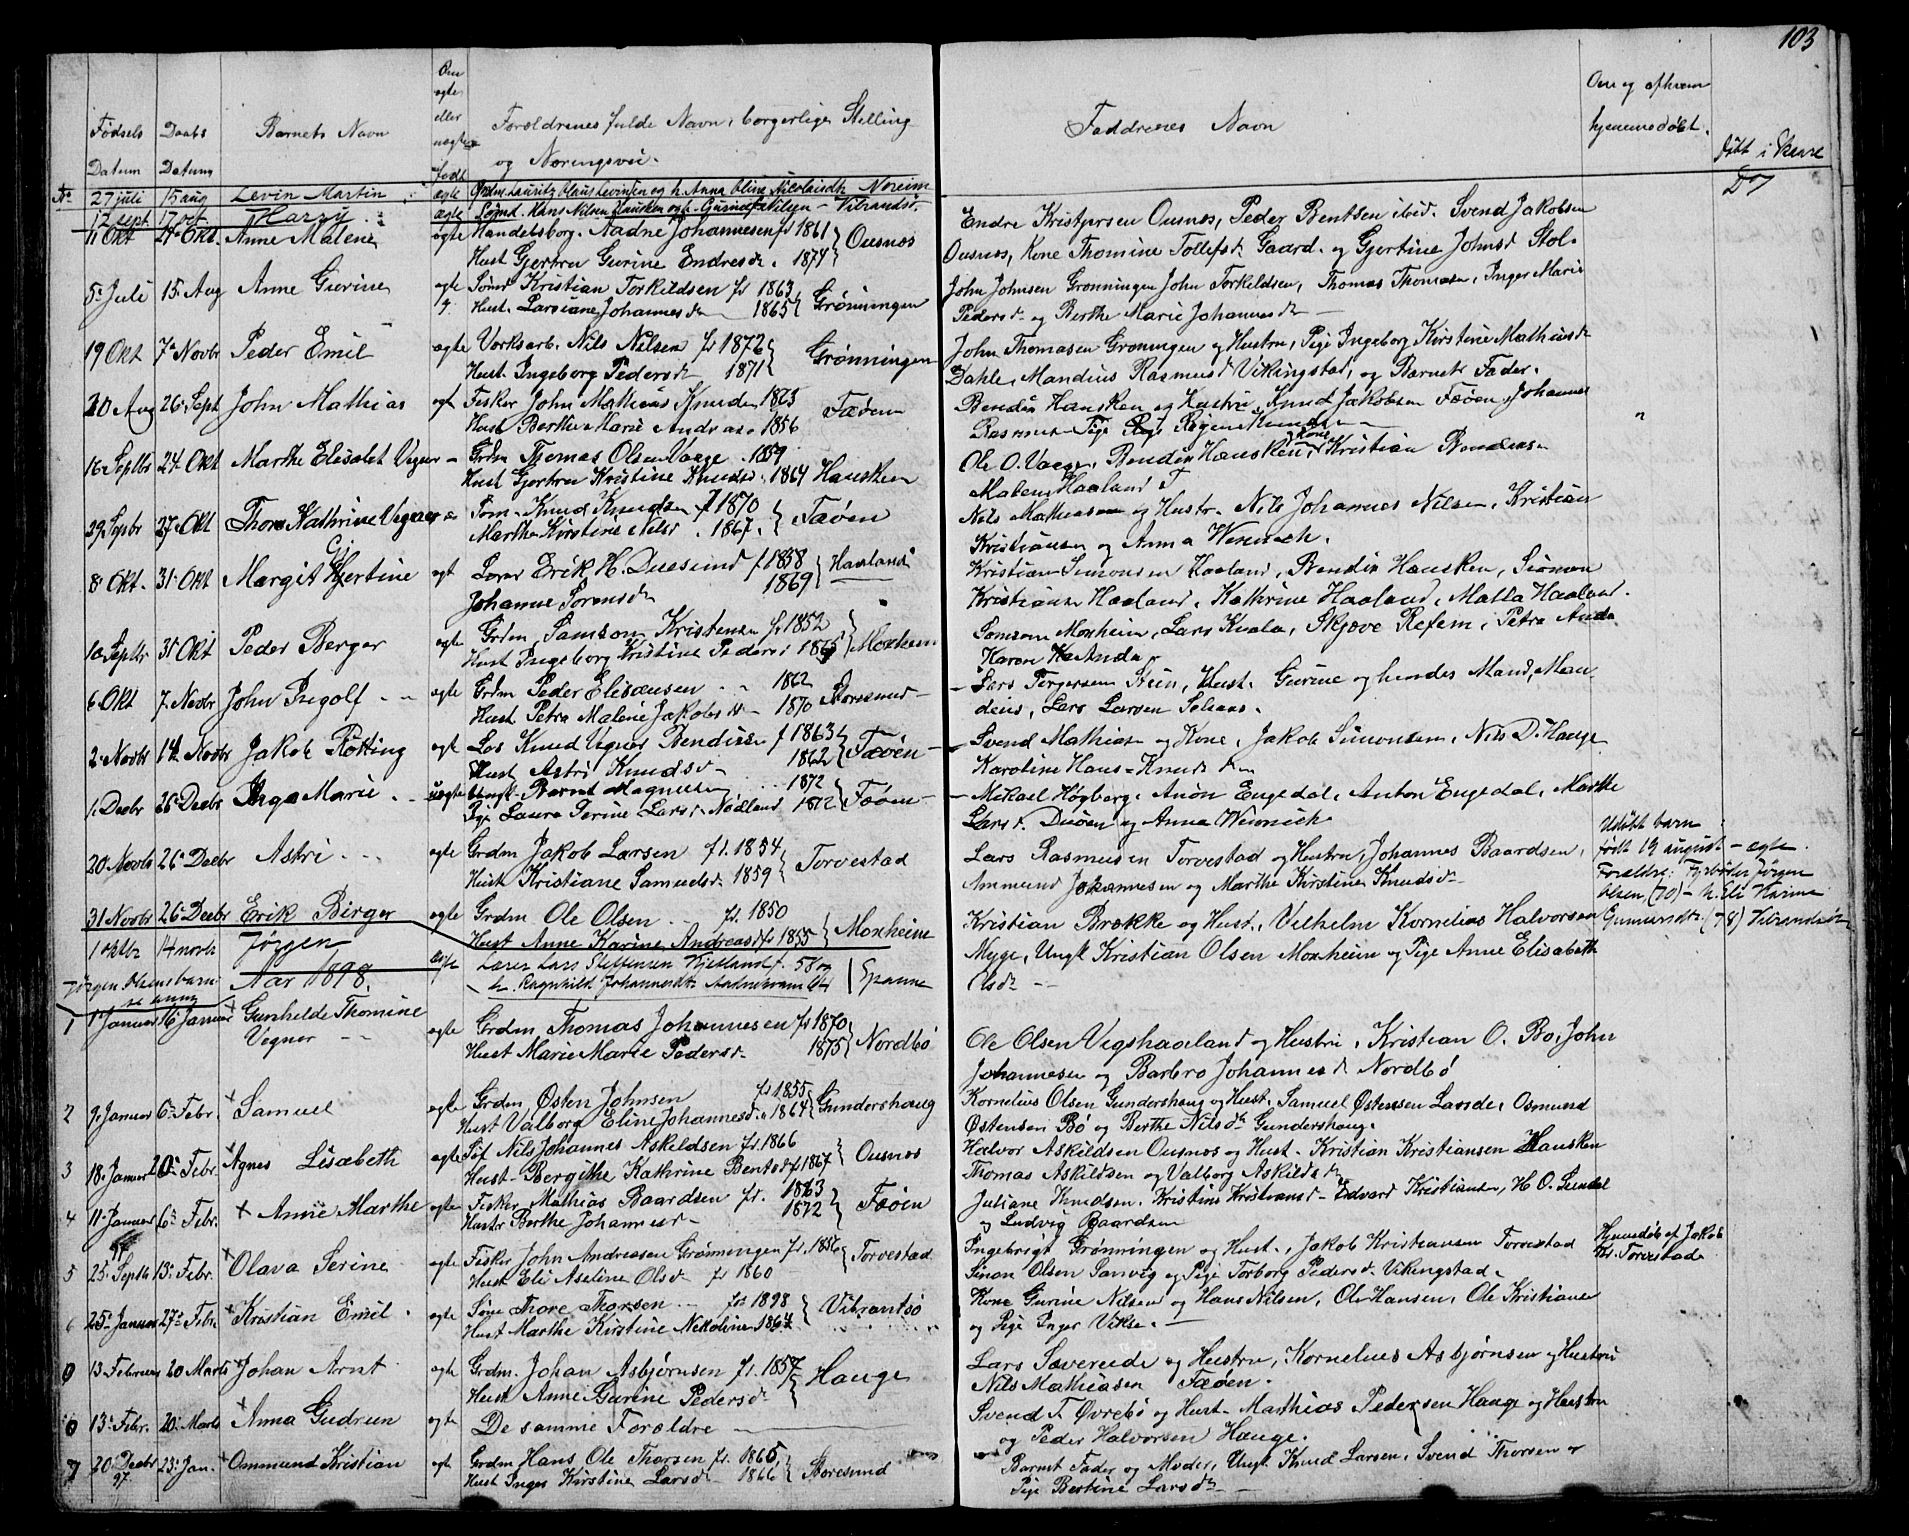 103
Fødsels Datum
Daabs Datum
Barnets Navn
Om egte eller uegte født
Foreldrenes fulde Navn, borgerlige Stilling og Næringsvei.
Faddrenes Navn
Om og af hvem hjemmedøbt.
født i Skare
27 juli 15 aug Levin Martin egte Grdm. Lauritz Olaus Levinsen og h. Anna Oline Nicolaisdtr Noreim
12 sept. 17 oct. Harry egte Hans Nilsen Hausken og h. Nilsen - Vibrandsø
11 Okt 24 Okt. Anne Malene egte Handelsborg. Aadne Johannesen f 1861 Ousnøs
Hust Gjertru Gurine Endresd. 1874
Endre Kristjersen Ousnøs, Peder Bentsen ibid. Svend Jakobsen
Ousnøs, Kone Thomine Tollefsd. Gaard. og Gjertine Johnsd Stol.
5 Juli 15 Aug Anne Gurine egte Kristian Torkildsen f 1863 Grønningen
Hust. Larsiane Johannesd 1865
John Johnsen Grønningen John Torkildsen, Thomas Thomasen, Inger Marie
Pedersd og Berthe Marie Johannesd
19 Okt 7 Novbr Peder Emil egte Nils Nilsen f 1872 Grønningen
Hust. Ingeborg Pedersd 1871
John Thomasen Grønningen og Hustru, Pige Ingeborg Kirstine Mathiasd
Dahle, Mandius Rasmusd Vikingstad, og Barnets Fader.
20 Aug 26 Sept John Mathias egt Fisker John Mathias Knudsen 1865 Fæøen
Hust Berthe Marie Andreas. 1856
Bendix Hausken og Hustru, Knud Jakobsen Fæøen, Johannes
16 Septbr 24 Okt Marthe Elisabet Vegner Grdm Thomas Olsen Vaage 1859
Hust Gjertru Kristine Knudsd. 1864 Hausken
Ole O. Vaage, Bendix Hausken, Kone, Kristian Bendixsen
Malene Haaland
29 Septbr 24 Okt Thora Kathrine Vegner Knud Knudsen f 1870 Fæøen
Marthe Kirstine Nilsd. 1867
Nils Mathiasen og Hustr. Nils Johannes Nilsen, Kristian
Kristiansen og Anna Wennech.
8 Okt. 31 Okt Margit Gjertine egt Lærer Erik H. Duesund f 1858 Haaland
Johanne Sørensd 1869
Kristian Simonsen Haaland, Bendix Hausken, Simon
Kristiansen Haaland, Kathrine Haaland, Malla Haaland.
10 Septbr 31 Okt Peder Berger egte Grdm Samson Kristensen f 1852 Moxheim
Hust Ingeborg Kristine Pedersd 1865
Samson Moxheim, Lars Kvala, Skjæve Refem, Petra Anda
Karen K. Anda.
6 Okt 7 Novbr John Ingolf egte Grdm Peder Eliseusen 1862 Storesund
Hust Petra Malene Jakobsd 1870
Lars Torgersen Stein, Hust. Gurine og hendes Mand, Mandeus, Lars Larsen
2 Novbr 14 Novbr Jakob Fotting egte Los Knud Vegner Bendixsen f 1863 Fæøen
Hust Astri Knudsd 1862
Svend Mathiasen og Kone, Jakob Simonsen, Nils D. Hauge,
Karoline Hans=Knuds
1 Decbr 26 Decbr Inga Marie uegte Ungk. Bernt Magnusen 1872
Pige Laura Serine Larsd. Nødland 1872 Fæøen
Mikael Høgberg, Anon Engedal, Anton Engedal, Marthe
Larsd. og Anna Wennech
20 Novbr 26 Decbr Astri egte Grdm Jakob Larsen f. 1854 Torvestad
Hust Kristiane Samuelsd. 1859
Lars Rasmusen Torvestad og Hustru, Johannes Baardsen,
Ammund Johannesen og Marthe Kirstine Knudsd
Udøbt barn født 19 august - egte.
Foreldre: Fyrbøter Jørgen Olsen (70) - h. Eli Karine Gunnundtr. (78) Vibrandsø
31 Novbr 26 Decbr Erik Birger egte Grdm Ole Olsen f. 1850 Moxheim
Hust Anne Karine Andreasd f 1855
Kristian Brække og Hust, Vilhelm Kornelius Halvorsen
Myge, Ungk Kristian Olsen Moxheim og Pige Anne Elisabeth Olsd
1 oktbr 14 novb Jørgen egte Lærer Lars Steffensen Kjetland f. 58 og
h. Ragnhild Johannesdtr Spanne
Jørgen Olsens barn se anm
Aar 1898.
1 1 Januar 16 Januar Gunhilde Thomine Vegner egte Grdm Thomas Johannesen f 1870 Nordbø
Hust Marie Marie Pedersd 1875
Ole Olsen Vigshaaland og Hustru, Kristian O. Bø, John
Johannesen og Barbro Johannesd Nordbø
2 9 Januar 6 Febr. Samuel egte Grdm Østen Johnsen f 1855 Gundershaug
Hust Valborg Eline Johannesd. 1864
Kornelius Olsen Gundershaug og Hust. Samuel Østensen Larsde, Osmund
Østensen Bø og Berthe Nilsd Gundershaug.
3 18 Januar 20 Febr. Agnes Lisabeth egte Nils Johannes Askildsen f. 1866 Ousnøs
Hust. Bergithe Kathrine Bentsd f 1867
Halvor Askildsen Ousnøs og Hust. Kristian Kristiansen Hausken
Thomas Askildsen og Valborg Askildsd
4 11 Januar 6 Febr. Anne Marthe egte Fisker Mathias Baardsen f. 1863 Fæøen
Hustr Berthe Johannesd 1872
Juliane Knudsen, Kristine Kristiansd - Edvard Kristiansen, H. O. Sundal
og Ludvig Baardsen
5 25 Septb 97 13 Febr. Olava Serine egte Fisker John Andreasen Grønningen f. 1856 Torvestad
Hust Eli Aseline Olsd f 1860
Ingebrigt Grønningen og Hust., Jakob Kristiansen Torvestad
Simon Olsen Sanvig og Pige Torborg Pedersd. Vikingstad
Hjemmedøbt af Jakob Kr. Torvestad
6 25 Januar 27 Febr. Kristian Emil egte Thore Thorsen 1898 Vibrantsø
Hust Marthe Kirstine Nikoline 1864
Kone Gurine Nilsen og Hans Nilsen, Ole Hansen, Ole Kristiansen
og Pige Inger Vikse.
13 Februar 20 Marts Johan Arnt egte Grdm. Johan Asbjørnsen f. 1857 Hauge
Hust Anne Gurine Pedersd
Lars Søvereide og Hustru, Kornelius Asbjørnsen og Hustru
Nils Mathiasen Fæøen.
13 Febr. 20 Marts Anna Gudrun egte De samme Foreldre
Svend T. Øvrebø og Hust. Mathias Pedersen Hauge og Hustru
og Peder Halvorsen Hauge.
7 20 Decbr 97 23 Jan. Ommund Kristian egt Grdm Hans Ole Thorsen f. 1865 Storesund
Hust Inger Kirstine Larsd 1866
Barnets Fader og Moder, Ungk Knud Larsen, Svend Thorsen og
Pige Bertine Larsd